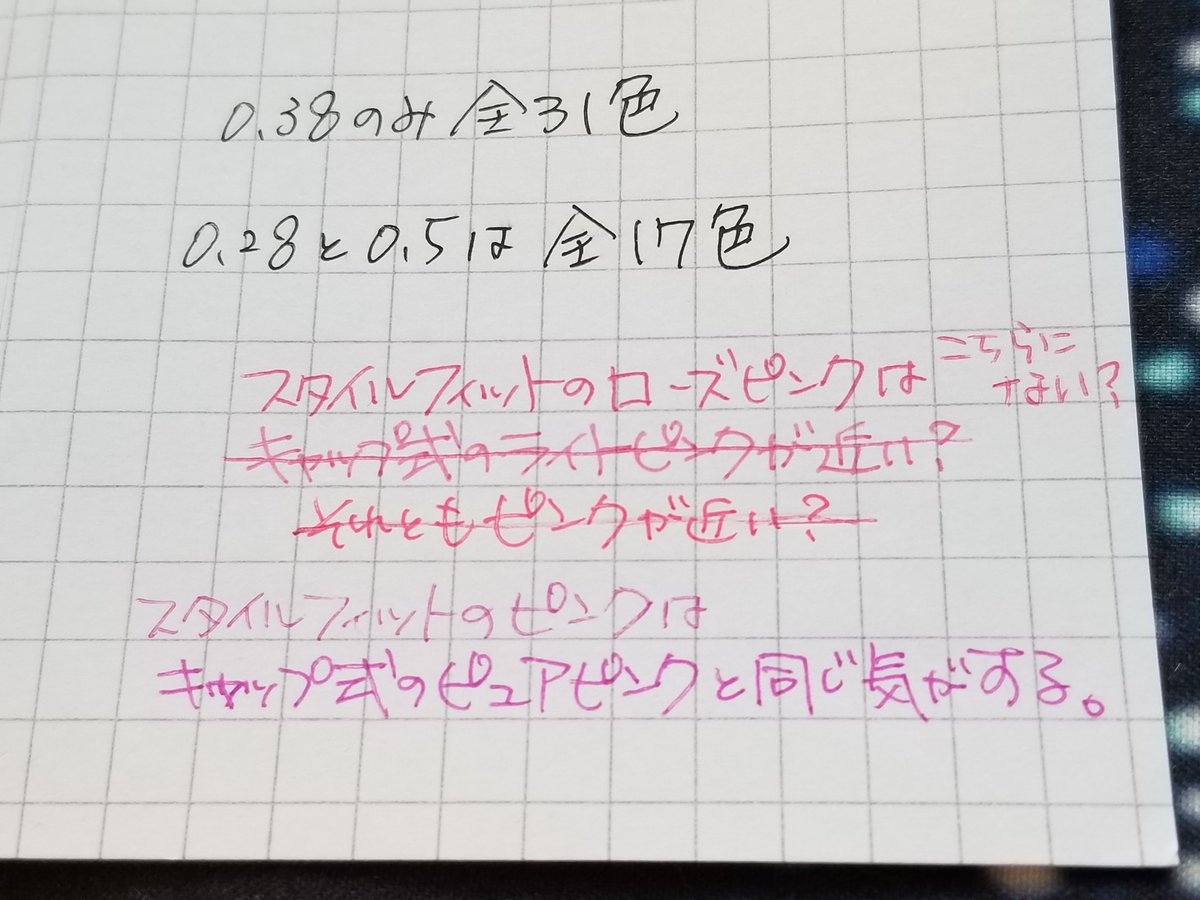 0.38のみ 全31色
0.28と0.5は 全17色
スタイルフィットのローズピンクは こちらに
ない?
キャップ式のライトピンクが近い?
それともピンクが近い?
スタイルフィットのピンクは
キャップ式のピュアピンクと同じ気がする。